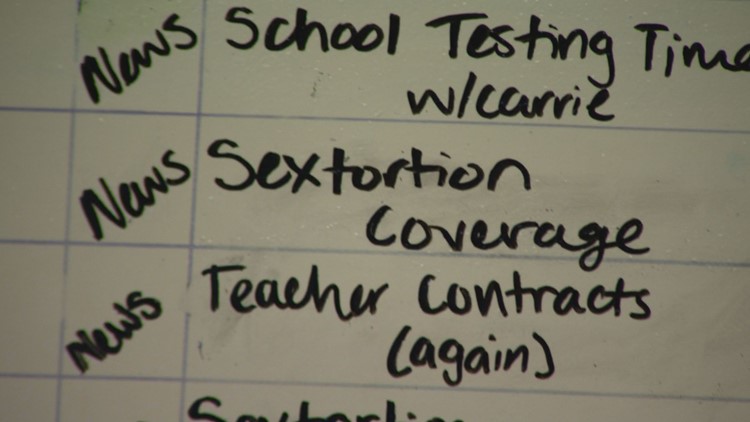 News School Testing Time
w/carrie
News Sextortion
Coverage
News Teacher Contracts
(again)